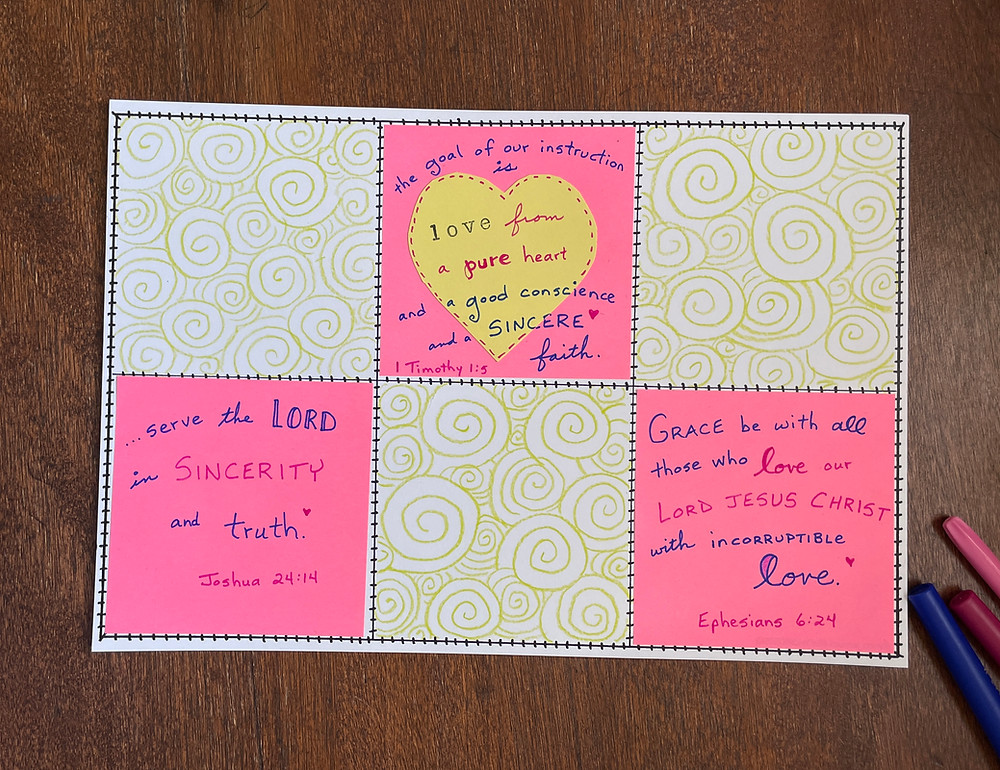 the goal of our instruction
is
love from
a pure heart
and a good conscience
and a SINCERE
faith.
1 Timothy 1:5
...serve the LORD
in SINCERITY
and truth.
Joshua 24:14
GRACE be with all
those who love our
LORD JESUS CHRIST
with incorruptible
love.
Ephesians 6:24